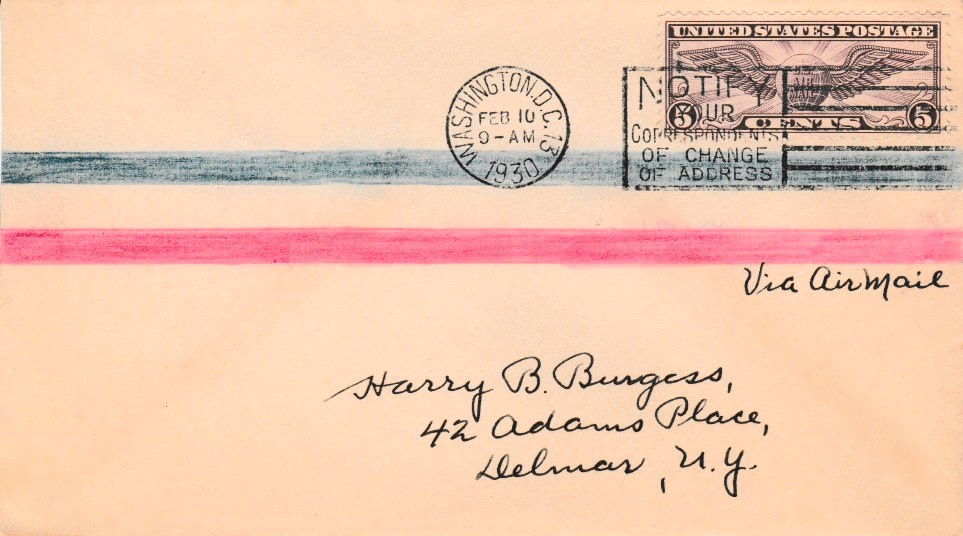 UNITED STATES POSTAGE
5 CENTS 5
WASHINGTON, D.C. 13
FEB 10
9-AM
1930
NOTIFY
YOUR
CORRESPONDENTS
OF CHANGE
OF ADDRESS
Via Air Mail
Harry B. Burgess,
42 Adams Place,
Delmar, N.Y.